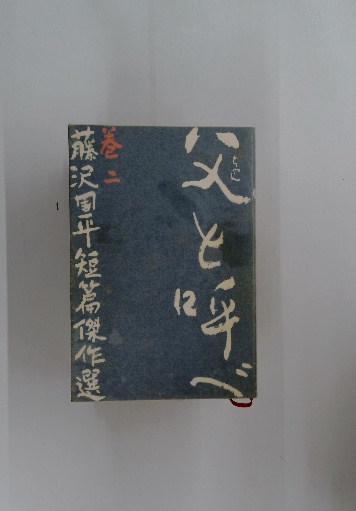 父と呼べ
巻二
藤沢周平短篇傑作選